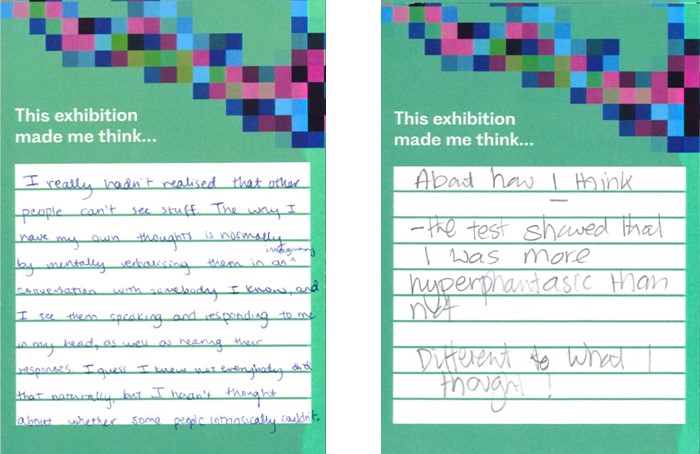 This exhibition
made me think...
I really hadn't realised that other
people can't see stuff. The why I
have my own thoughts is normally
imaginary
by mentally verbalising them in an ^
conversation with somebody I know, and
I see them speaking and responding to me
in my head, as well as hearing their
responses. I guess I knew not everybody did
that naturally, but I hadn't thought
about whether some people intrinsically couldn't.
This exhibition
made me think...
About how I think
-the test showed that
I was more
hyperphantasic than
not
Different to what I
thought!